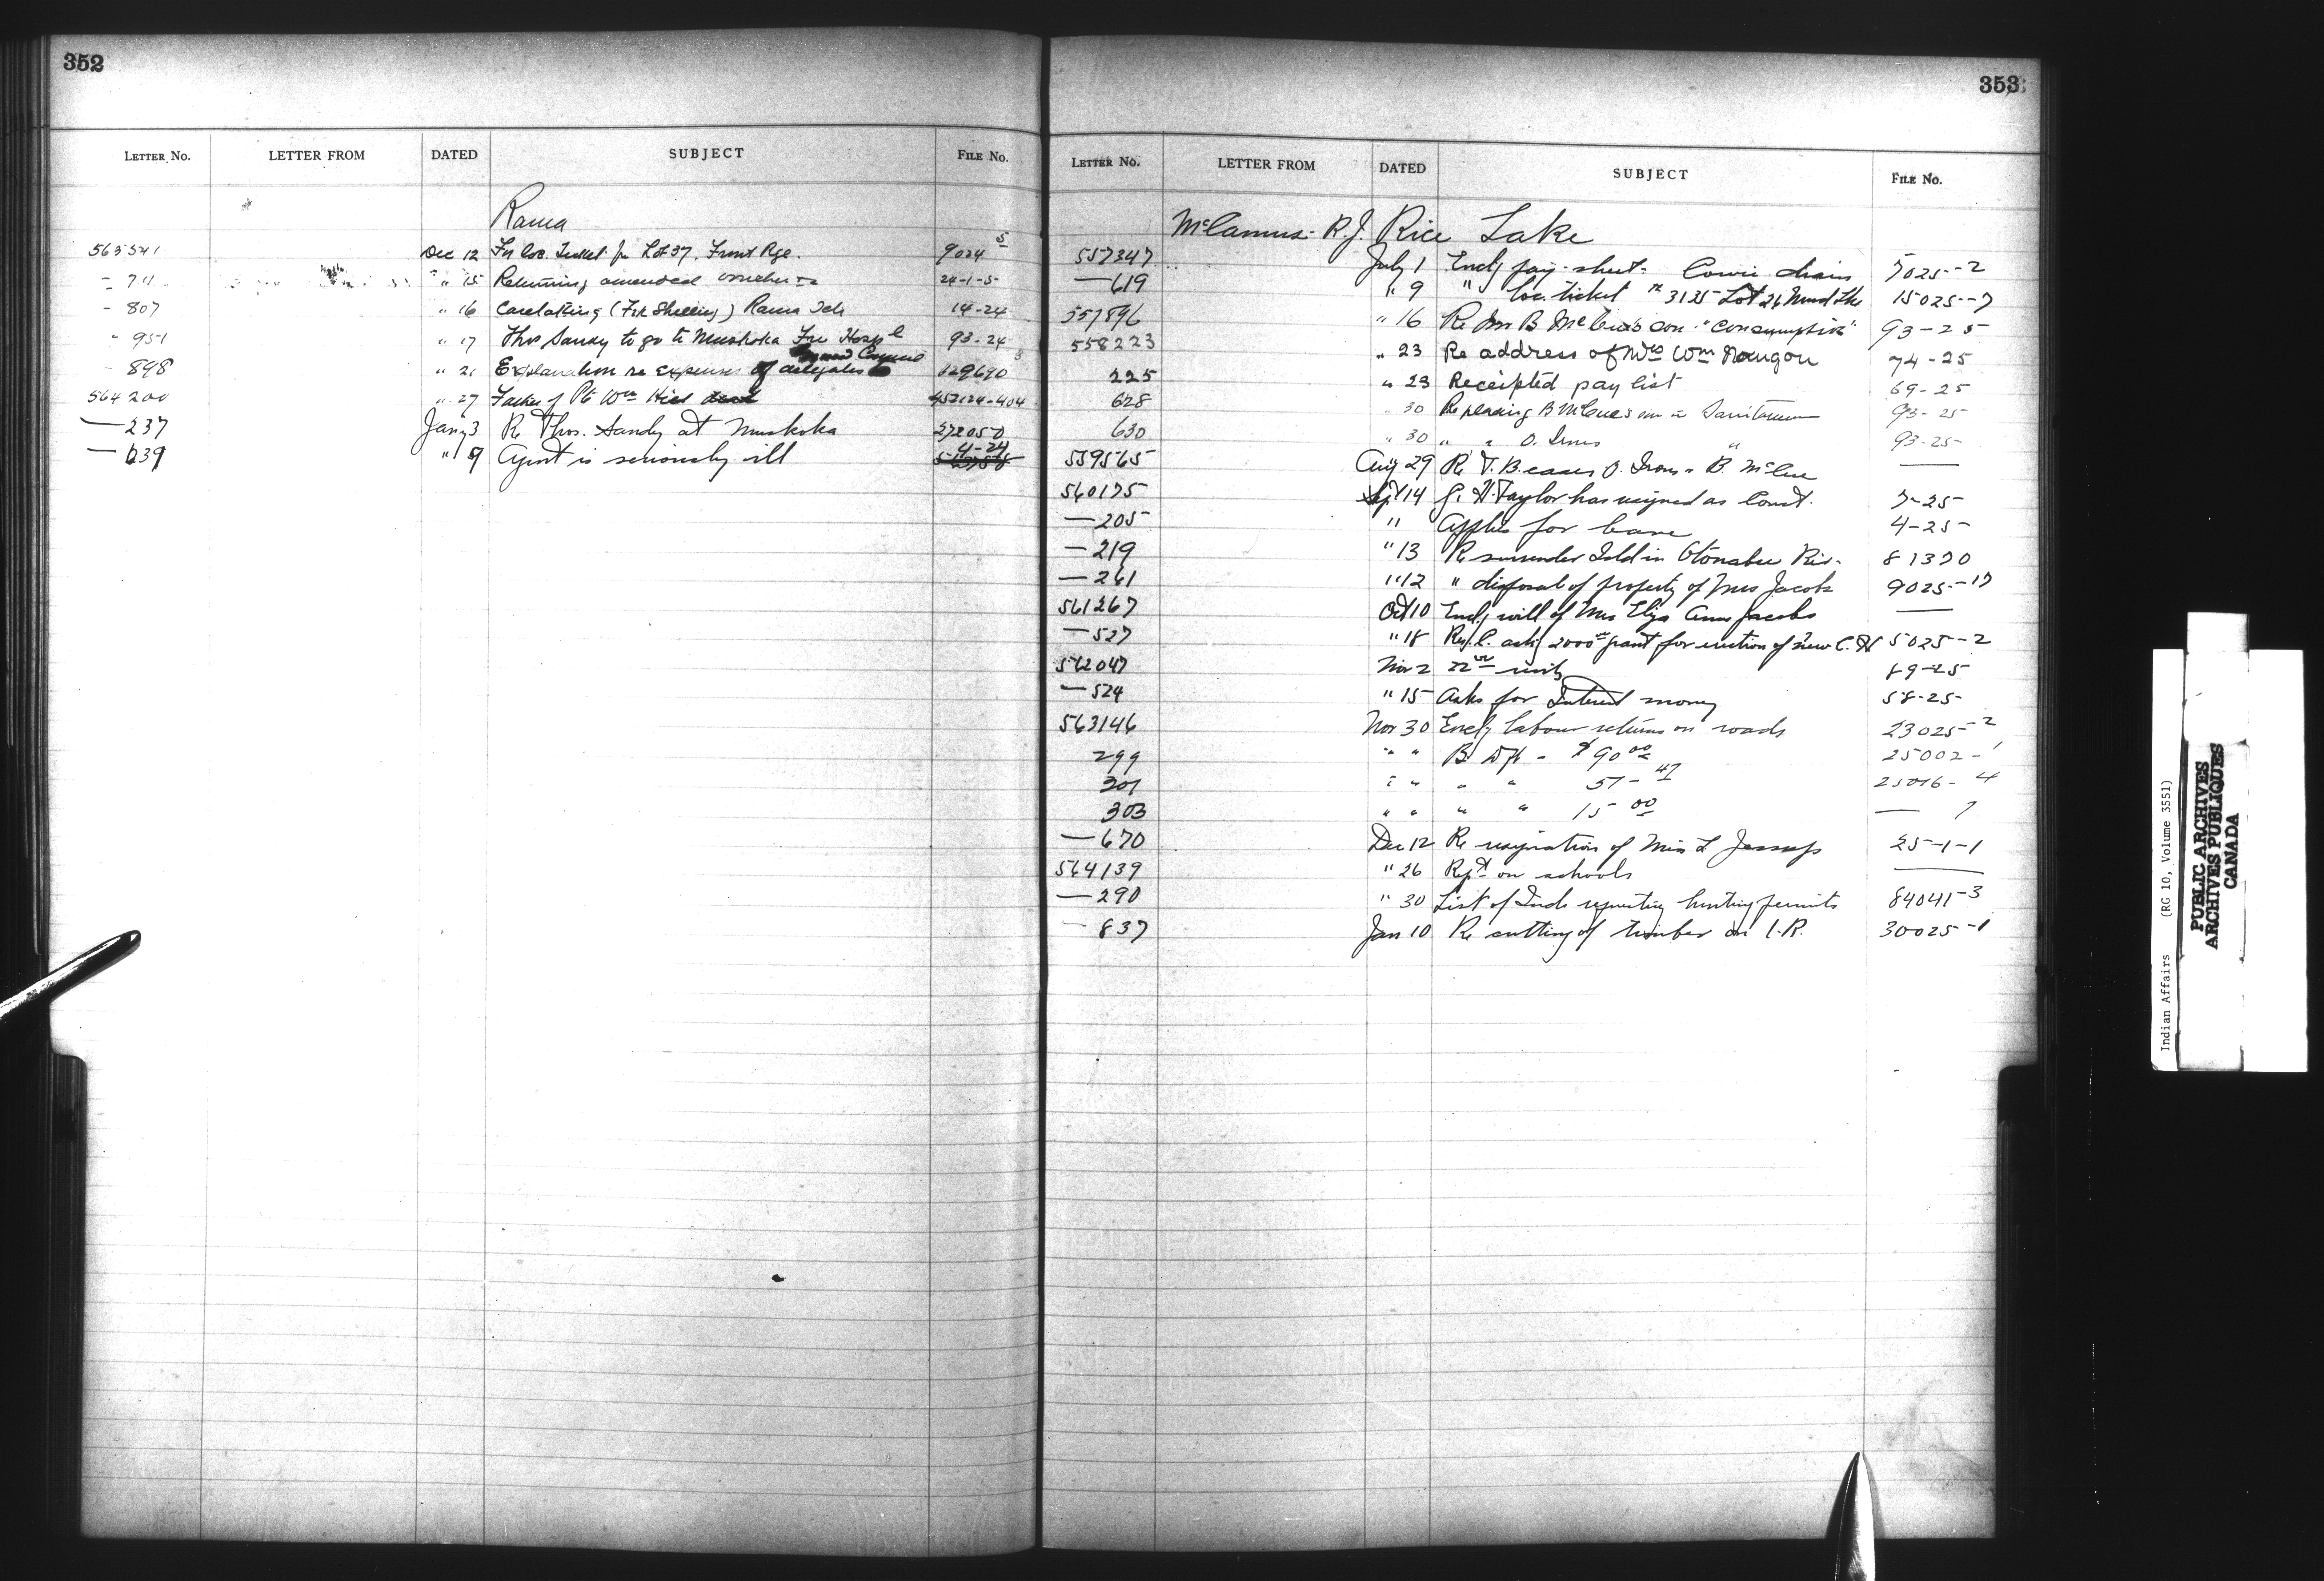 352
LETTER NO. LETTER FROM DATED SUBJECT FILE NO.
Rama
563541 Dec 12 Fr loc. Ticket for Lot 37. Front Rge. 9024 5
- 711 " 15 Returning amended vouchers 24-1-5
- 807 " 16 Caretaking (Fsk Shilling) Rama Schl 14-24
- 951 " 17 Thos Sandy to go to Muskoka Free Hospl 93-24
Grand Council
898 " 21 Explanation re expenses of delegates to 329690 3
564200 " 27 Father of Pte Wm Hill 452124-404
— 237 Jany 3 Re Thos. Sandy at Muskoka 272050
— 639 " 9 Agent is seriously ill 4-24
353
LETTER NO. LETTER FROM DATED SUBJECT FILE NO.
McCamus - R.J. Rice Lake
557347 July 1 Encl pay-sheet - Cowie drain 5025-2
— 619 " 9 " loc. ticket No 3135 Lot 26 Mud Lke 15025-7
557896 " 16 Re Mr B McCue's son "consumption" 93-25
558223 " 23 Re address of Mrs Wm Naugon 74-25
225 " 23 Receipted pay list 69-25
628 " 30 Re placing B McCue's son in Sanitarium 93-25
630 " 30 " " O. Irons " 93-25
559565 Aug 29 Re T.B. cases O. Irons & B. McCue —
560175 Sept 14 G. H. Taylor has resigned as Const. 7-25
— 205 " Applies for leave 4-25
— 219 " 13 Re surrender Isld in Otonabee Riv. 81370
— 261 " 12 " disposal of property of Mrs Jacobs 9025-17
561267 Oct 10 Encl, will of Mrs Eliza Anne Jacobs —
— 527 " 18 Res/C. ask 2000 00 grant for erection of new C. H 5025-2
562047 Nov 2 22nd 89-25
— 524 " 15 Asks for Interest money 58-25
563146 Nov 30 Encl labour returns on roads 23025-2
299 " " B. D/H - $90 00 25002-1
301 " " " " 57-47 25016-4
303 " " " " 15 00 — 7
— 670 Dec 12 Re resignation of Miss L Jessup 25-1-1
564139 " 26 Rept on schools —
— 290 " 30 List of Inds requesting hunting permits 84041-3
— 837 Jan 10 Re cutting of timber on I.R. 30025-1
Indian Affairs (RG 10, Volume 3551)
PUBLIC ARCHIVES
ARCHIVES PUBLIQUES
CANADA